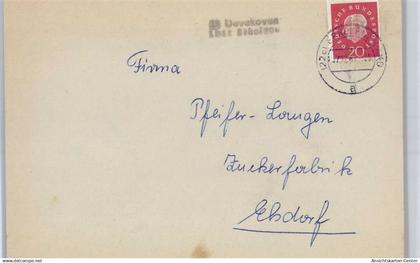 Uevekoven
über Erkelenz
DEUTSCHE BUNDESPOST
20
(22
a
Firma
Pfeifer-Langen
Zuckerfabrik
Elsdorf
Ansichtskarten-Center